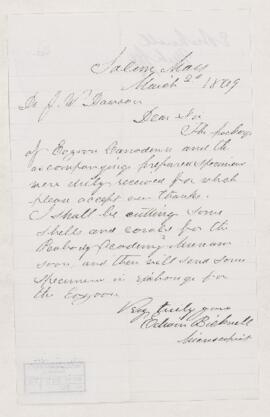 Salem, Mass
March 2d 1869
Dr J. W. Dawson
Dear Sir
The package
of Eozoon Canadense and the
accompanying prepared specimens
were duly received for which
please accept our thanks.
I shall be cutting some
shells and corals for the
Peabody Academy Museum
soon, and then will send some
specimens in exchange for
the Eozoon
Very truly yours
Edwin Bicknell